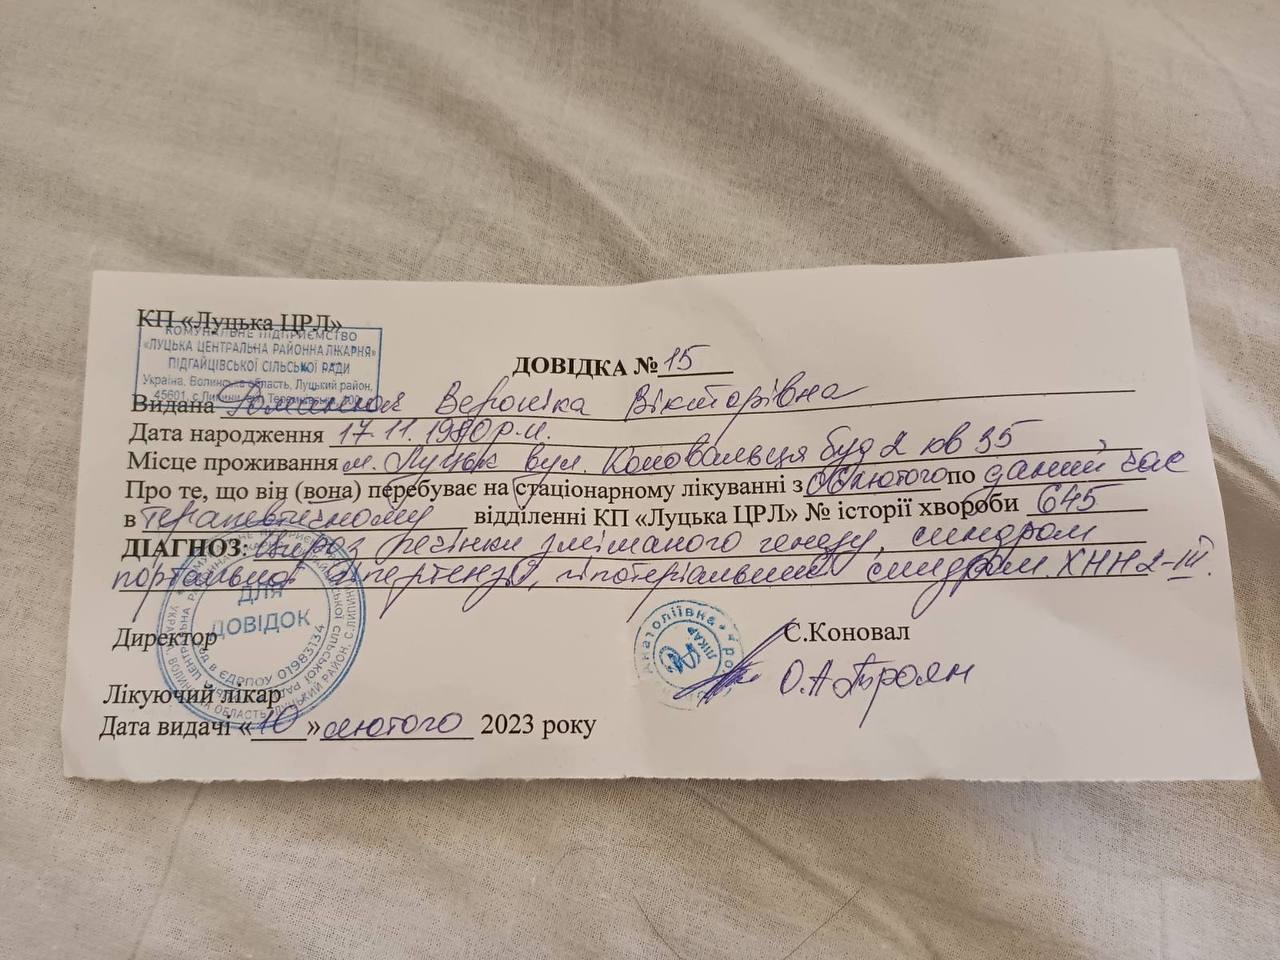 КП «Луцька ЦРЛ»
КОМУНАЛЬНЕ ПІДПРИЄМСТВО
«ЛУЦЬКА ЦЕНТРАЛЬНА РАЙОННА ЛІКАРНЯ»
ПІДГАЙЦІВСЬКОЇ СІЛЬСЬКОЇ РАДИ
Україна, Волинська область, Луцький район,
45601, с.Липини, вул. Теремнівська, 100
ДОВІДКА № 15
Видана Вероніка Вікторівна
Дата народження 17.11.1980 р.н.
Місце проживання м. Луцьк вул. Коновальця буд 2 кв 35
Про те, що він (вона) перебуває на стаціонарному лікуванні з 06 лютого по даний час
в терапевтичному відділенні КП «Луцька ЦРЛ» № історії хвороби 645
ДІАГНОЗ: Цироз печінки змішаного генезу, синдром
портальної гіпертензії, синдром ХНН 2-III.
ДЛЯ
ДОВІДОК
Код в ЄДРПОУ 01983134
Директор С.Коновал
Анатоліївна
ЛІКАР
О.А Троян
Лікуючий лікар
Дата видачі «10» лютого 2023 року